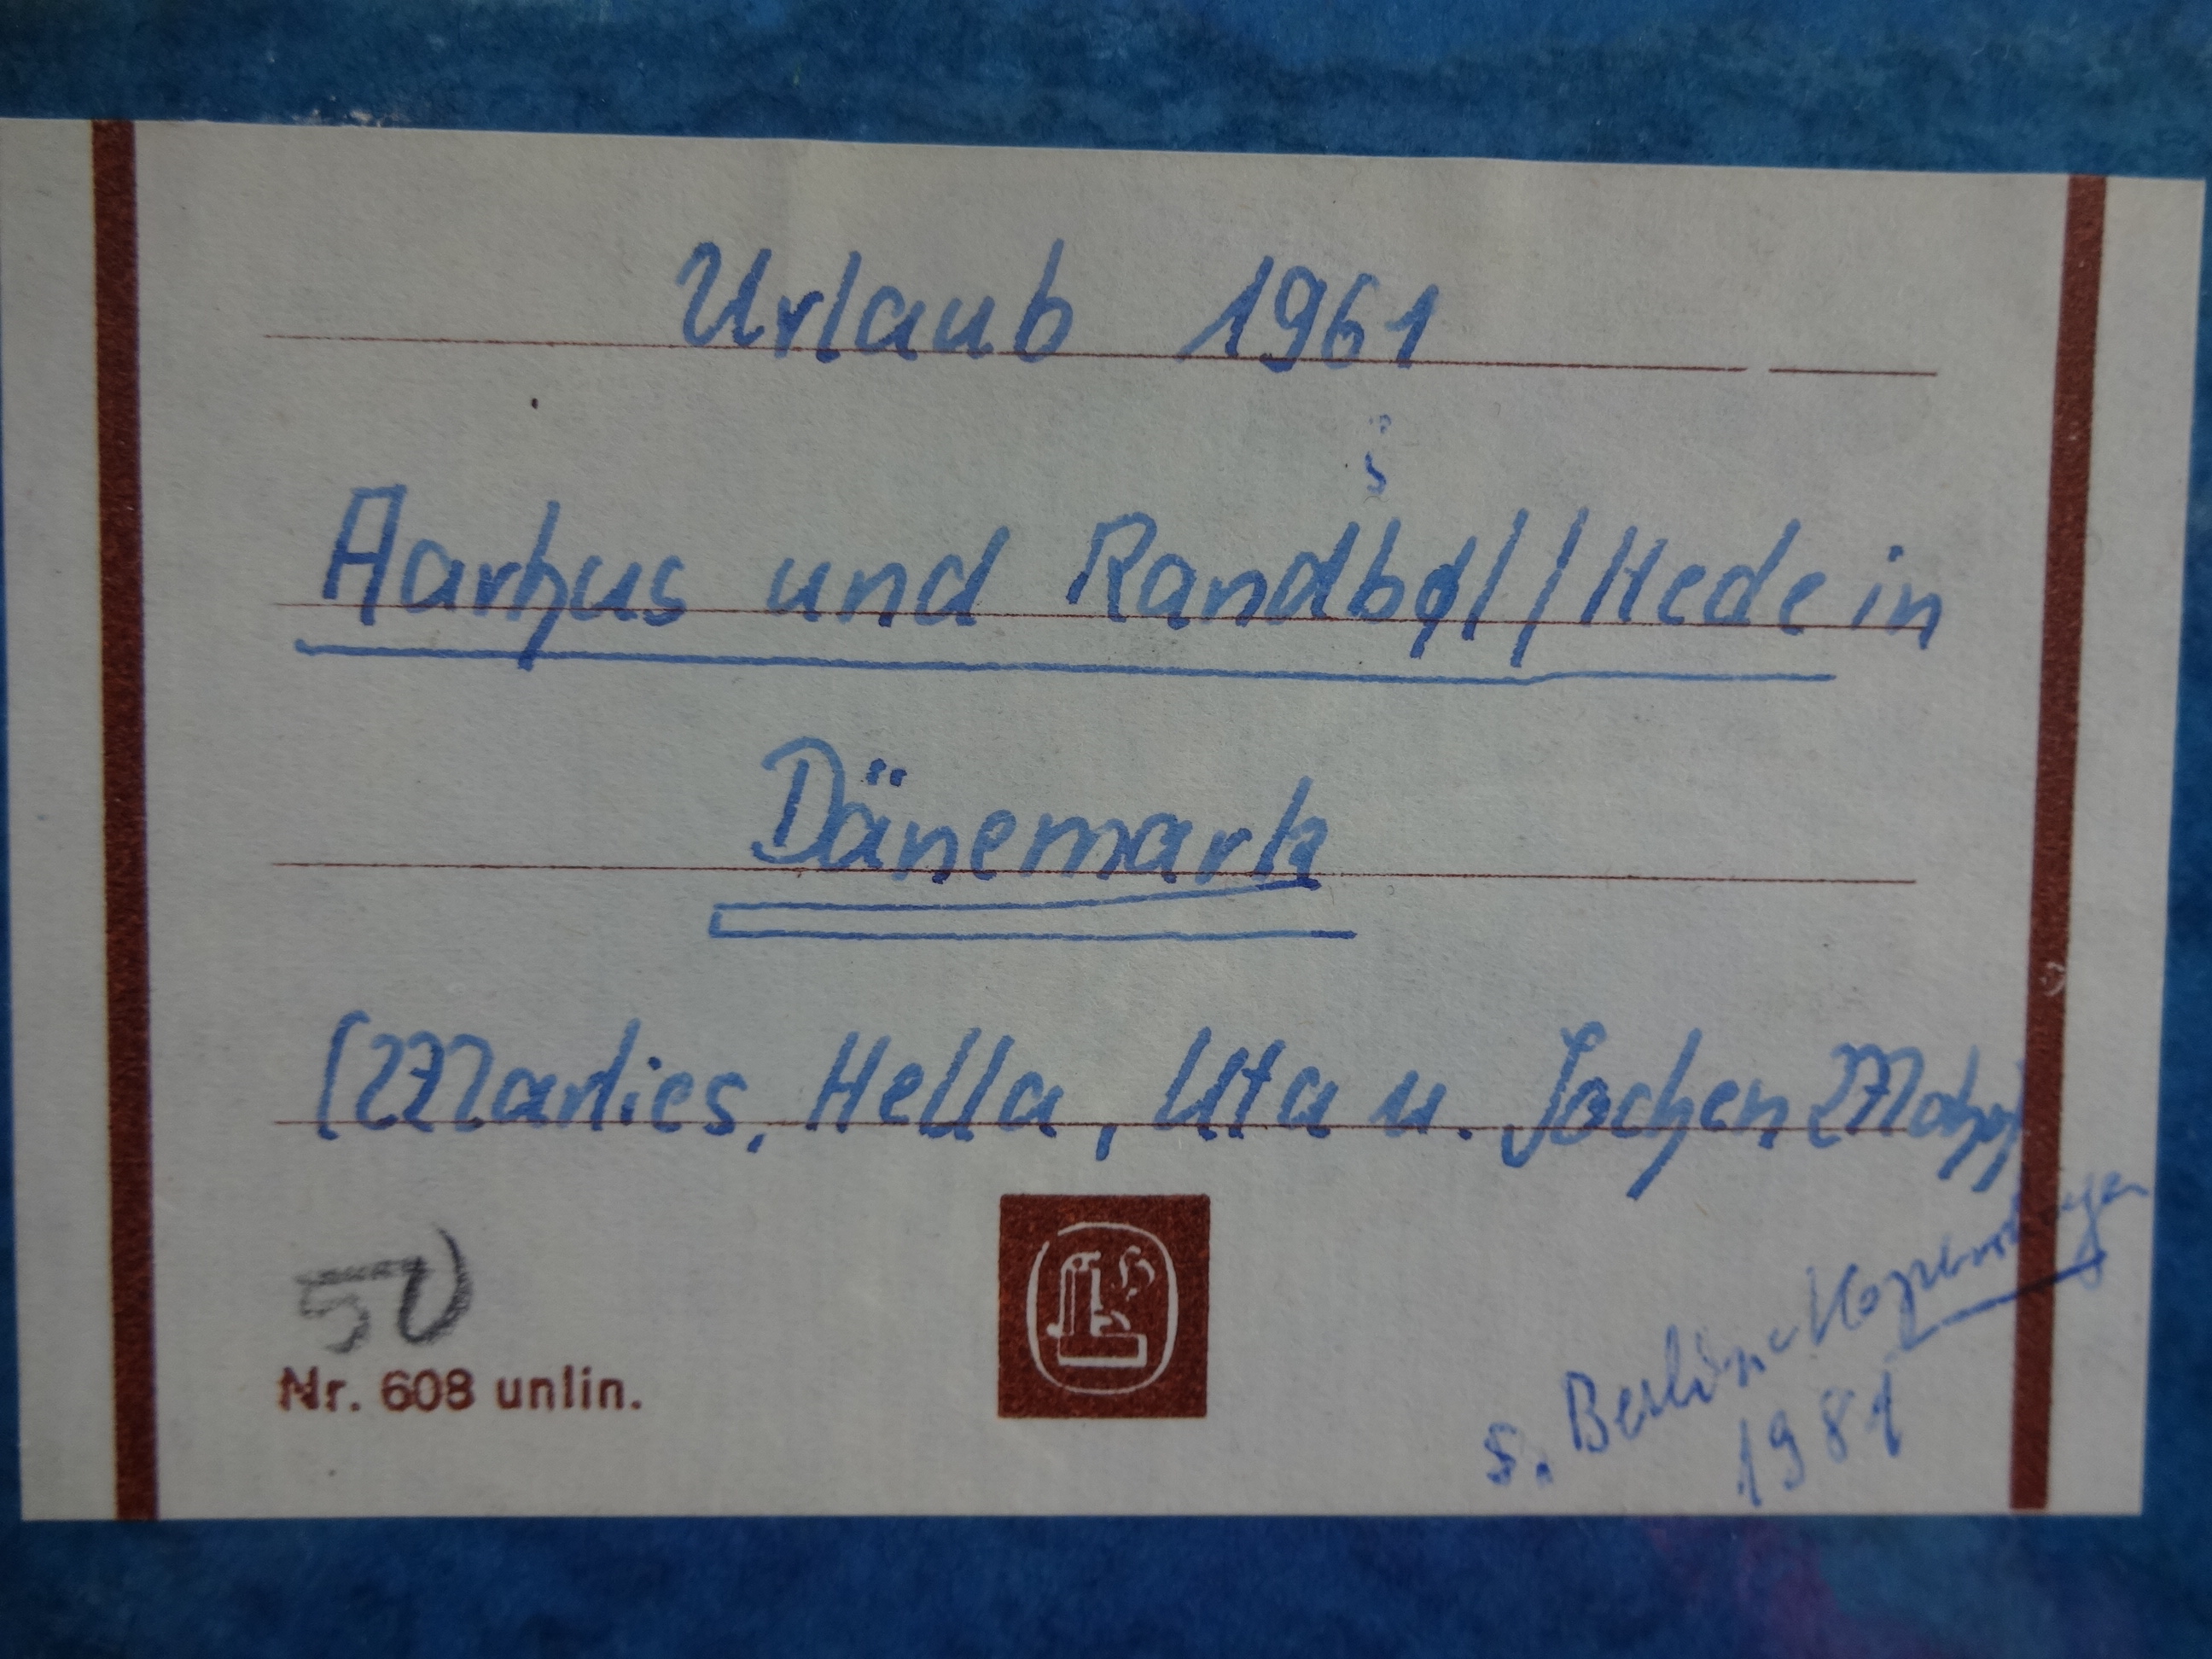 Urlaub 1961
Aarhus und Randbøl//Hede in
Dänemark
(Marlies, Hella, Uta u. Jochen
50
Nr. 608 unlin.
s. Berlin - Kopenhagen
1981